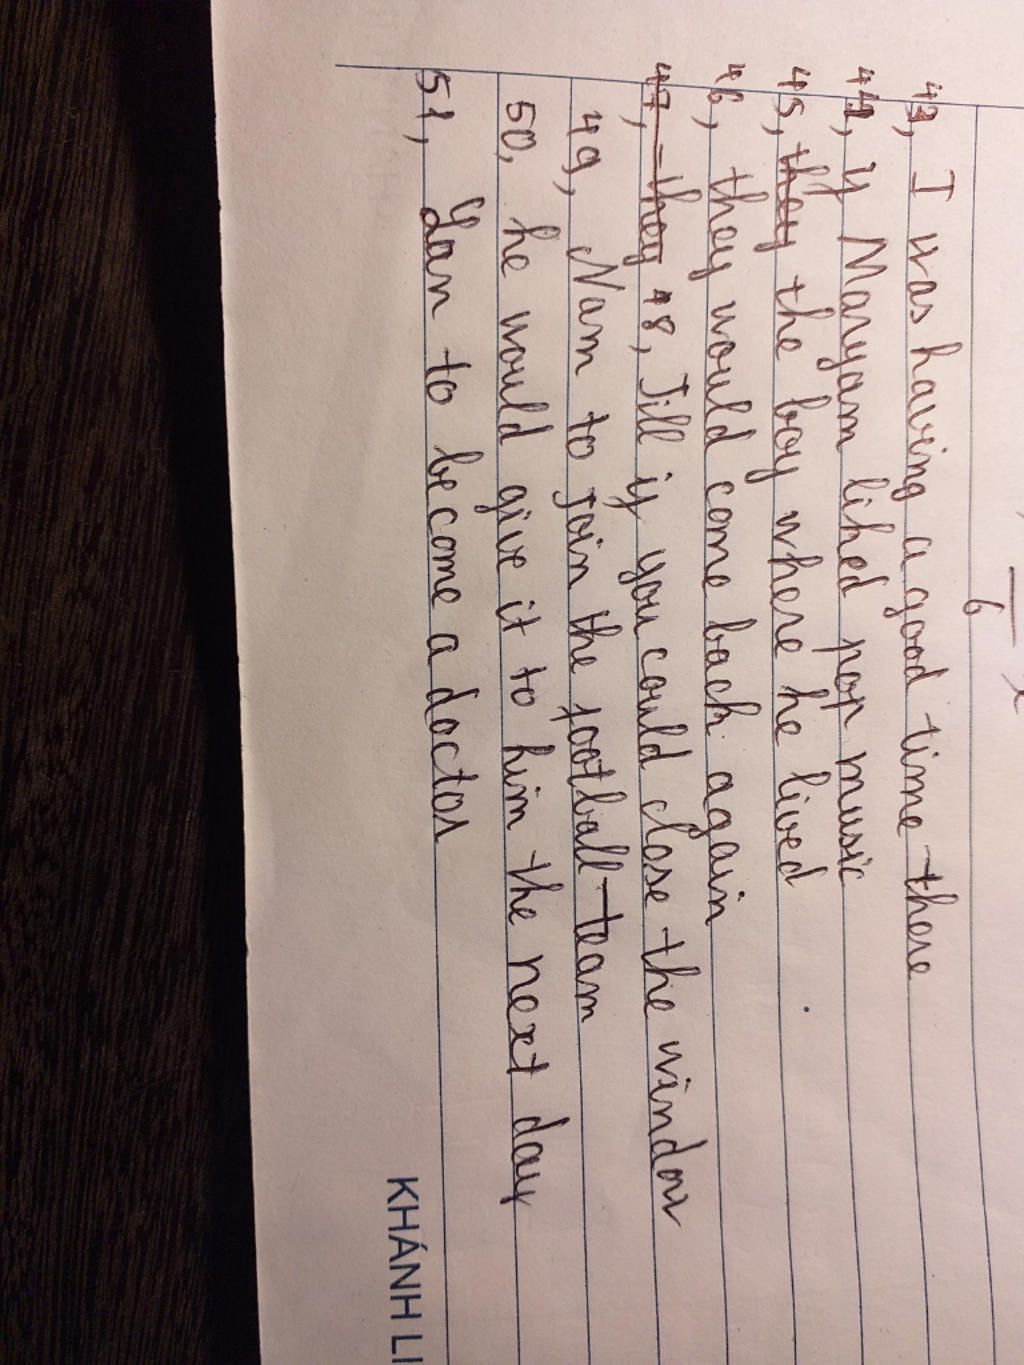 6
43, I was having a good time there
44, if Maryam liked pop music
45, they the boy where he lived
46, they would come back again
47, they 48, Jill if you could close the window
49, Nam to join the football team
50, he would give it to him the next day
51, Lan to become a doctor
KHÁNH LI